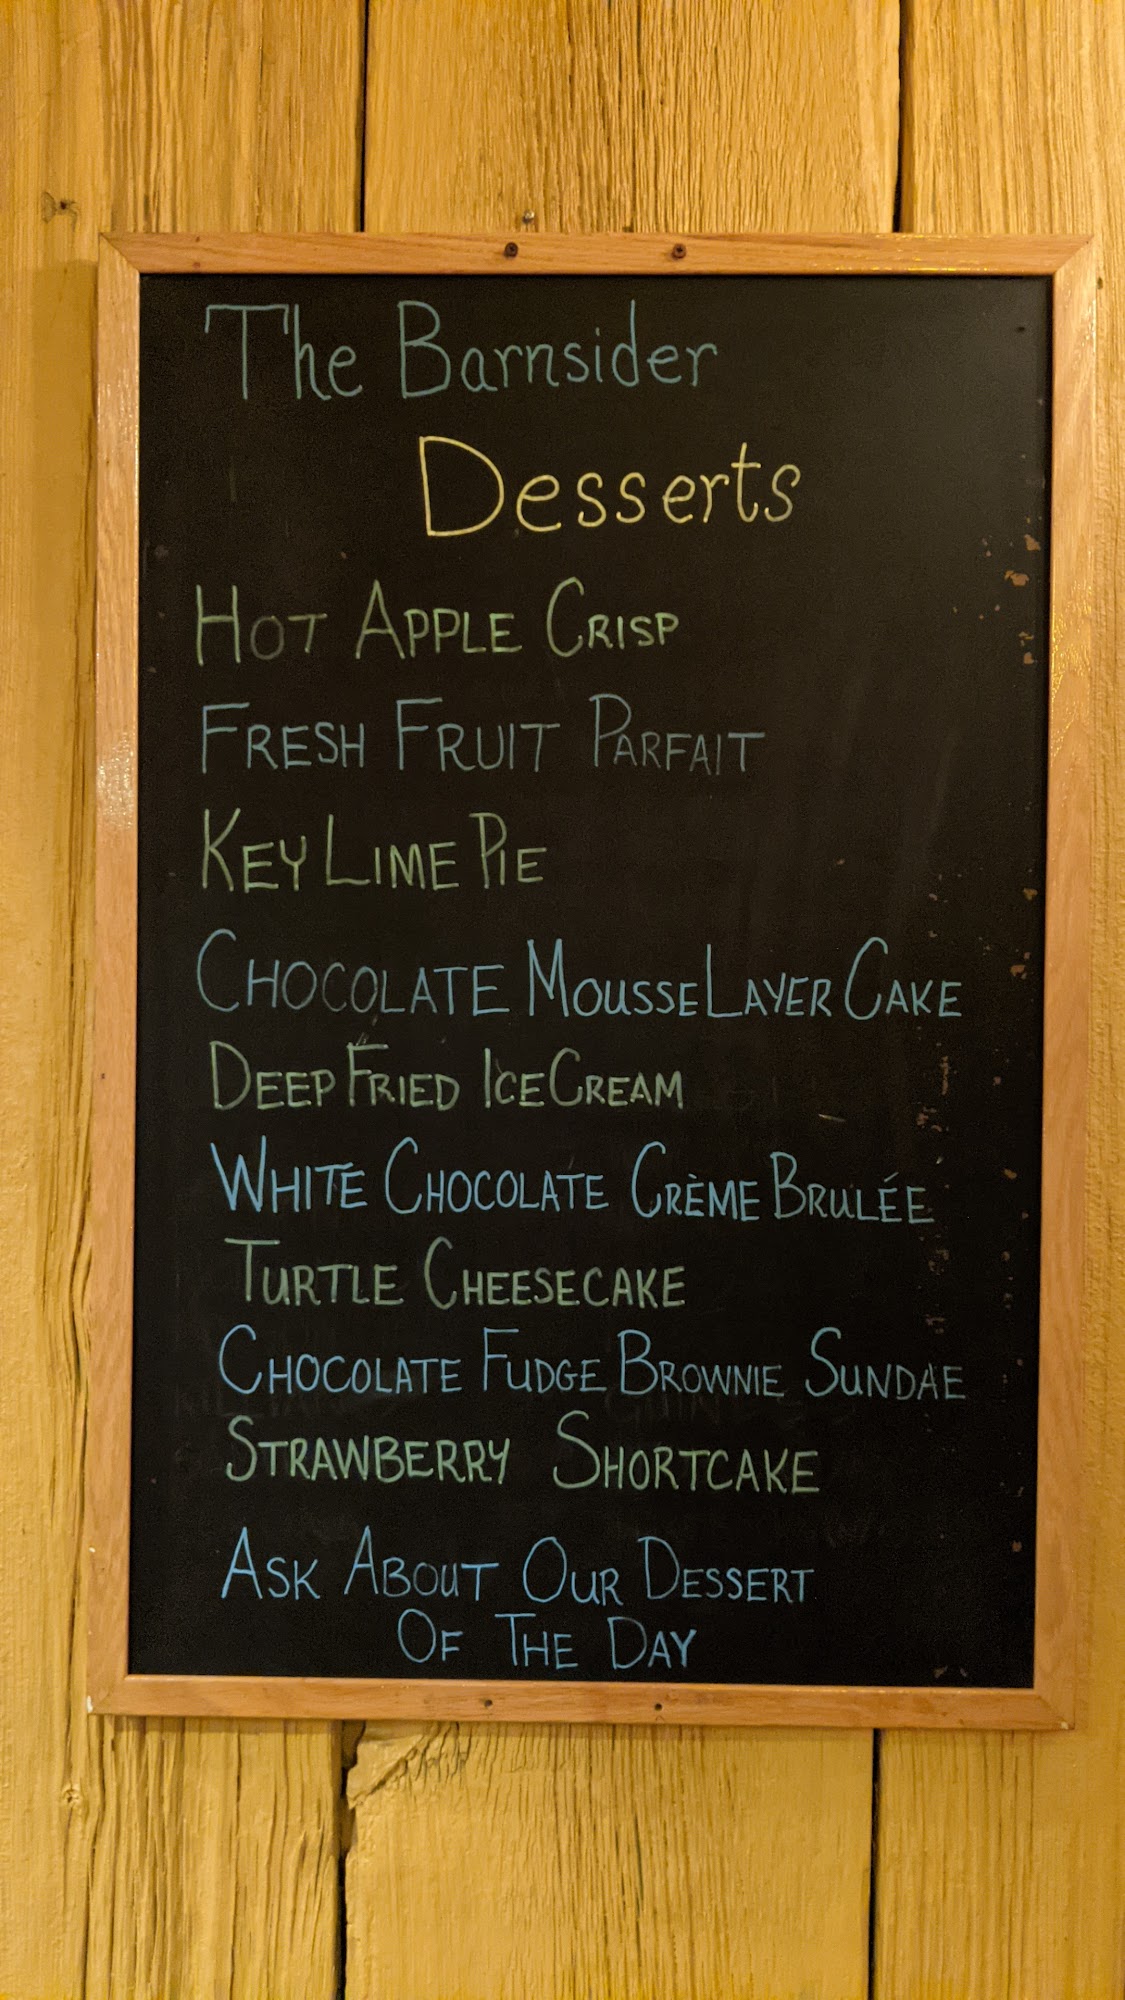 The Barnsider
Desserts
HOT APPLE CRISP
FRESH FRUIT PARFAIT
KEY LIME PIE
CHOCOLATE MOUSSE LAYER CAKE
DEEP FRIED ICE CREAM
WHITE CHOCOLATE CRÈME BRULÉE
TURTLE CHEESECAKE
CHOCOLATE FUDGE BROWNIE SUNDAE
STRAWBERRY SHORTCAKE
ASK ABOUT OUR DESSERT
OF THE DAY